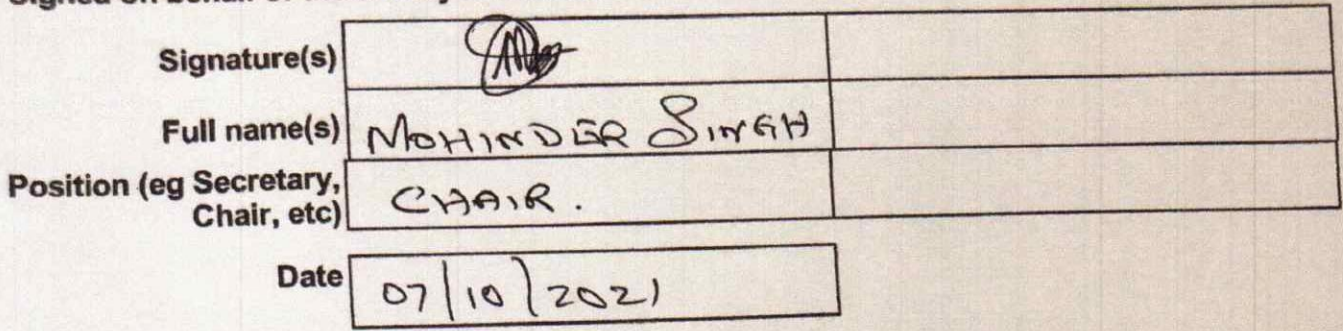 Signature(s)
Full name(s) MOHINDER SINGH
Position (eg Secretary,
Chair, etc) CHAIR.
Date 07/10/2021